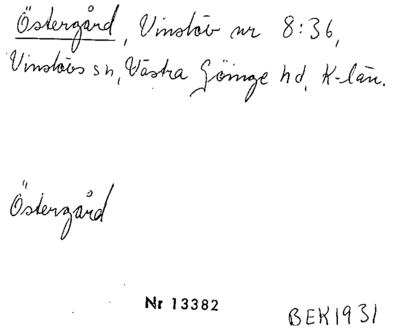 Östergård, Vinslöv nr 8:36,
Vinslövs sn, Västra Göinge hd, K-län.
Östergård
Nr 13382
BEK1931